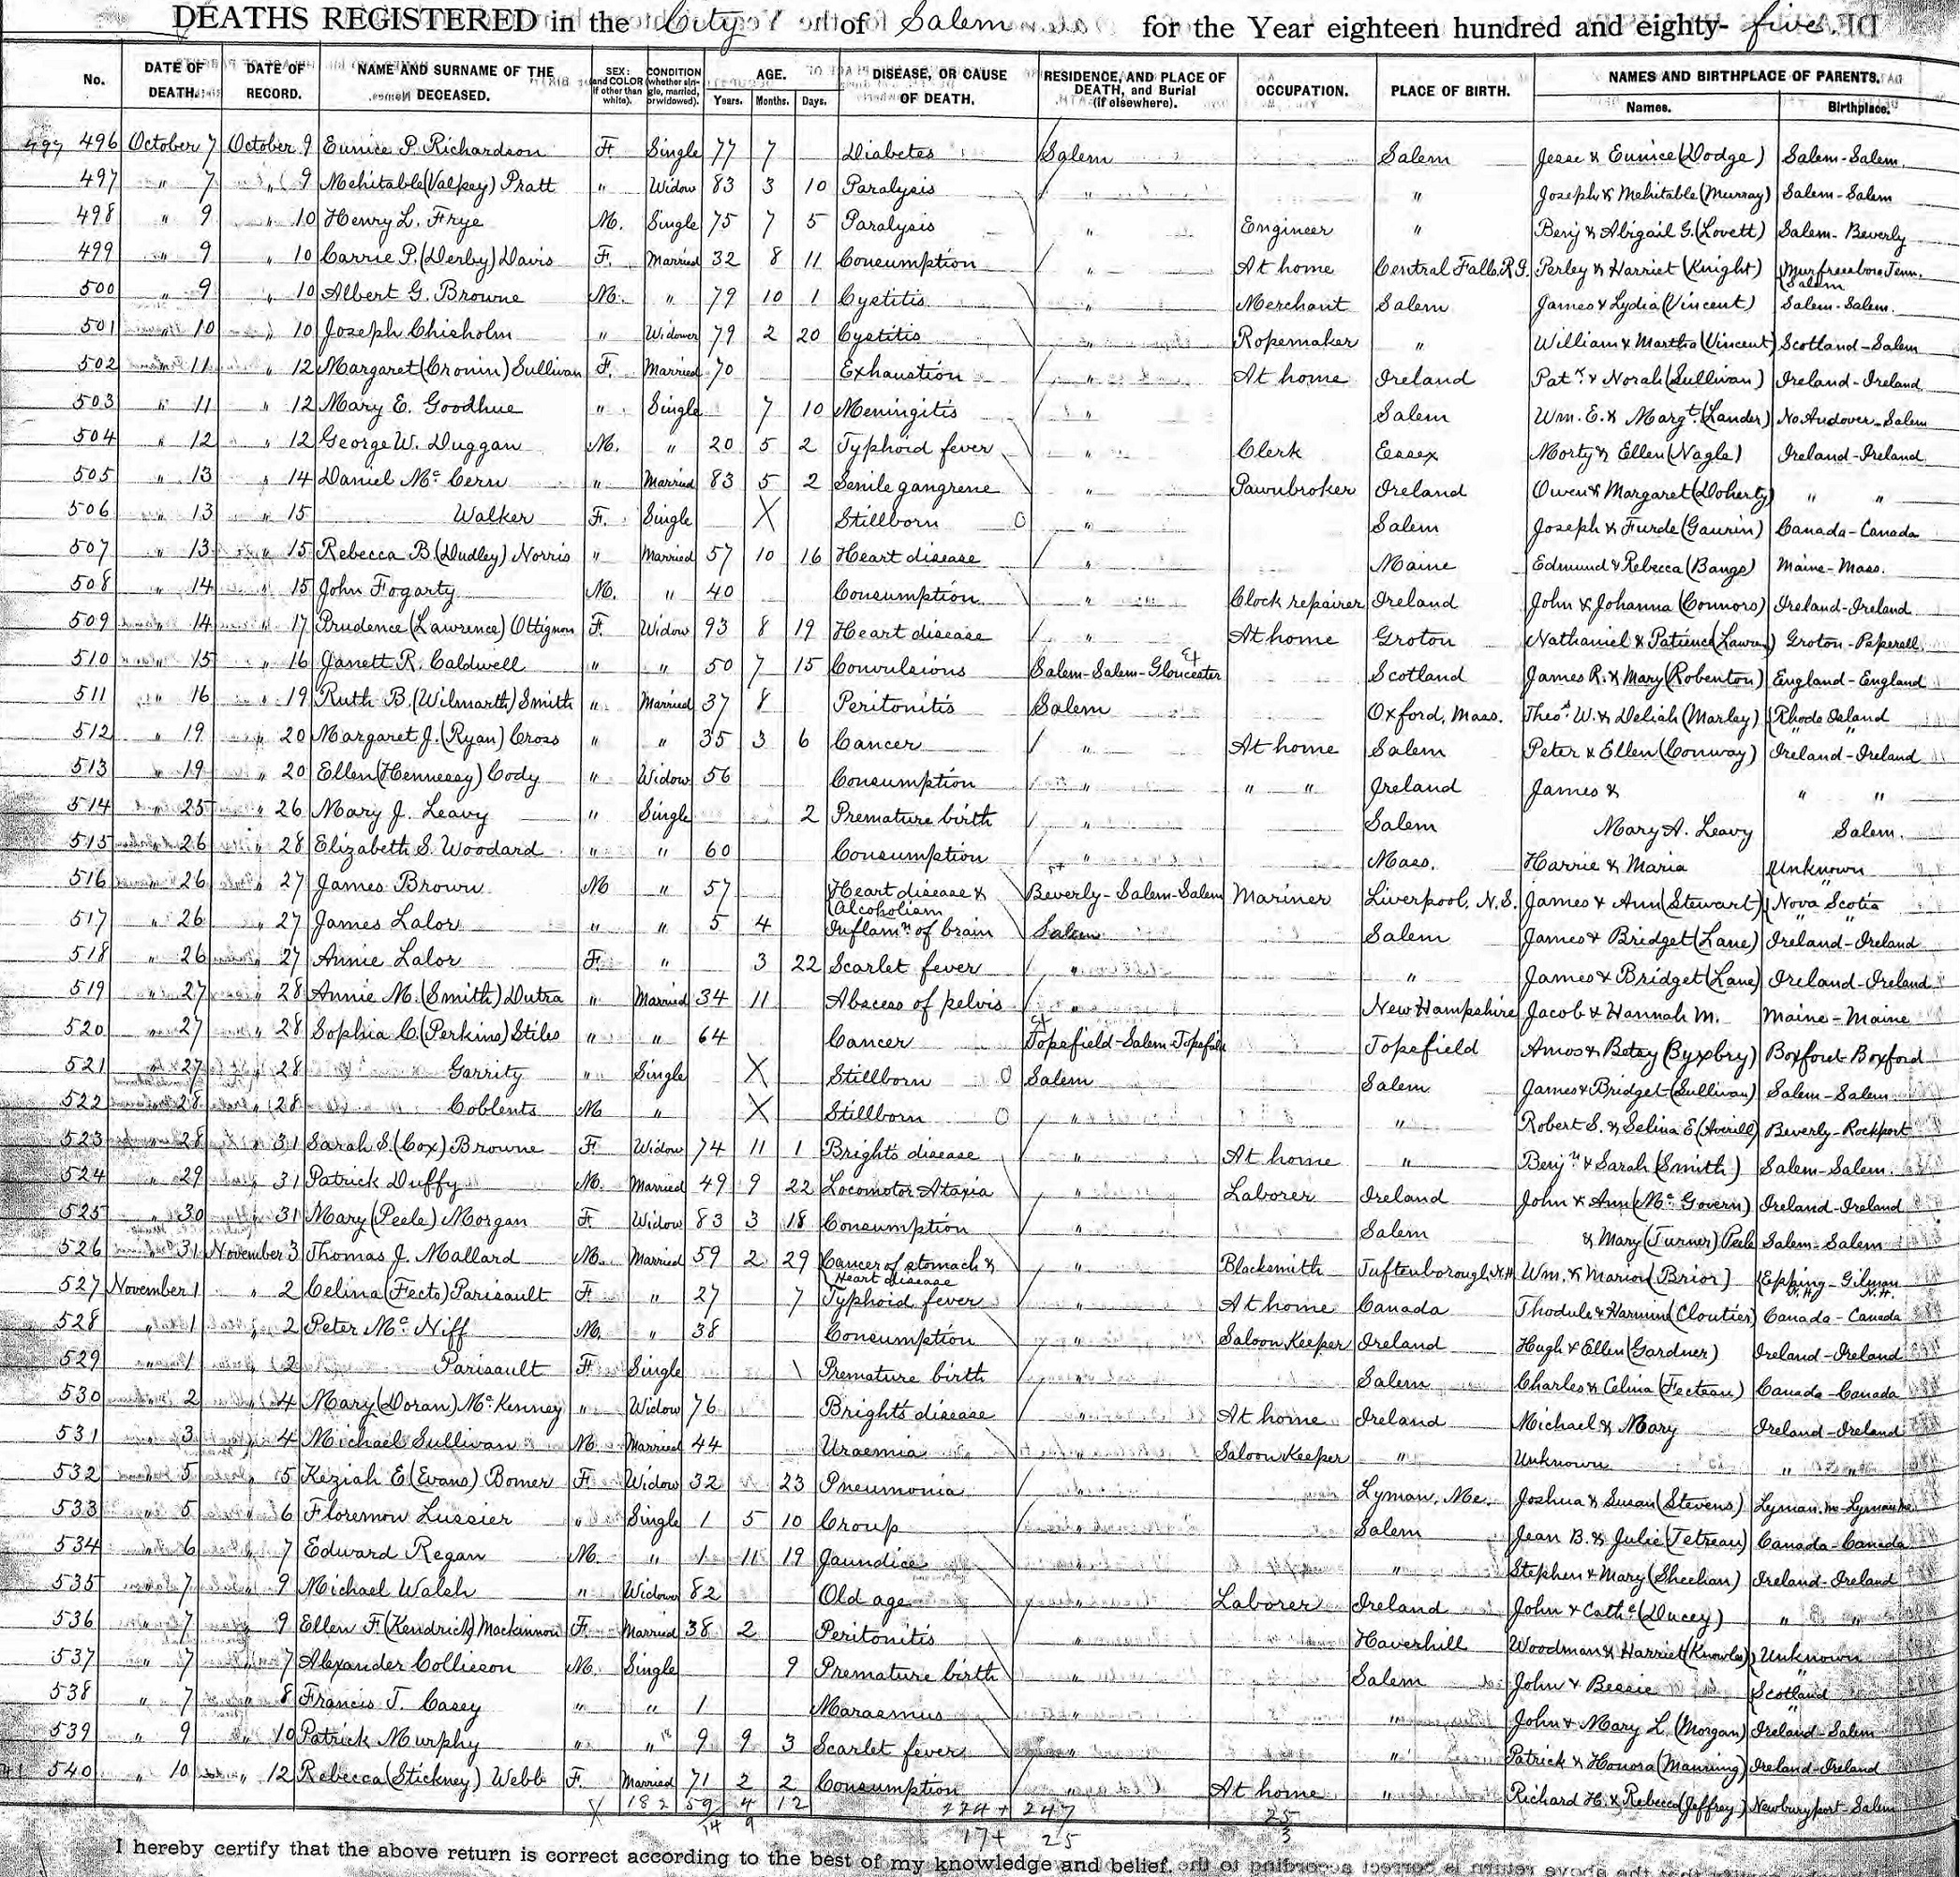 DEATHS REGISTERED in the City of Salem for the Year eighteen hundred and eighty-five.
No. DATE OF DEATH. DATE OF RECORD. NAME AND SURNAME OF THE DECEASED. SEX: (and COLOR if other than white). CONDITION (whether single, married, or widowed). AGE. Years. Months. Days. DISEASE, OR CAUSE OF DEATH. RESIDENCE, AND PLACE OF DEATH, and Burial (if elsewhere). OCCUPATION. PLACE OF BIRTH. NAMES AND BIRTHPLACE OF PARENTS. Names. Birthplace.
497 496 October 7 October 9 Eunice P. Richardson F. Single 77 7 Diabetes Salem Salem Jesse & Eunice (Dodge) Salem-Salem
497 " 7 " 9 Mehitable (Valpey) Pratt " Widow 83 3 10 Paralysis " " Joseph & Mehitable (Murray) Salem-Salem
498 " 9 " 10 Henry L. Frye M. Single 75 7 5 Paralysis " Engineer " Benj & Abigail G. (Lovett) Salem-Beverly
499 " 9 " 10 Carrie P. (Derby) Davis F. Married 32 8 11 Consumption " At home Central Falls, R.I. Perley & Harriet (Knight) Murfreesboro Tenn. Salem
500 " 9 " 10 Albert G. Browne M. " 79 10 1 Cystitis " Merchant Salem James & Lydia (Vincent) Salem-Salem.
501 " 10 " 10 Joseph Chisholm " Widower 79 2 20 Cystitis " Ropemaker " William & Martha (Vincent) Scotland-Salem
502 " 11 " 12 Margaret (Cronin) Sullivan F. Married 70 Exhaustion " At home Ireland Patk. & Norah (Sullivan) Ireland-Ireland
503 " 11 " 12 Mary E. Goodhue " Single 7 10 Meningitis " Salem Wm. E. & Margt. (Lander) No Andover-Salem
504 " 12 " 12 George W. Duggan M. " 20 5 2 Typhoid fever " Clerk Essex Morty & Ellen (Nagle) Ireland-Ireland
505 " 13 " 14 Daniel Mc Cern " Married 83 5 2 Senile gangrene " Pawnbroker Ireland Owen & Margaret (Doherty) " "
506 " 13 " 15 Walker F. Single X Stillborn O " Salem Joseph & Furde (Gaurin) Canada-Canada
507 " 13 " 15 Rebecca B. (Dudley) Norris " Married 57 10 16 Heart disease " Maine Edmund & Rebecca (Bangs) Maine-Mass.
508 " 14 " 15 John Fogarty M. " 40 Consumption " Clock repairer Ireland John & Johanna (Connors) Ireland-Ireland
509 " 14 " 17 Prudence (Lawrence) Ottignon F. Widow 93 8 19 Heart disease " At home Groton Nathaniel & Patience (Lawren) Groton-Peperell
510 " 15 " 16 Janett R. Caldwell " " 50 7 15 Convulsions Salem-Salem-Gloucester Scotland James R. & Mary (Robenton) England-England
511 " 16 " 19 Ruth B. (Wilmarth) Smith " Married 37 8 Peritonitis Salem Oxford, Mass. Theod. W. & Deliah (Marley) Rhode Island " "
512 " 19 " 20 Margaret J. (Ryan) Cross " " 35 3 6 Cancer " At home Salem Peter & Ellen (Conway) Ireland-Ireland
513 " 19 " 20 Ellen (Hennessy) Cody " Widow 56 Consumption " " " Ireland James & " "
514 " 25 " 26 Mary J. Leavy " Single 2 Premature birth " Salem Mary A. Leavy Salem.
515 " 26 " 28 Elizabeth S. Woodard " " 60 Consumption " Mass. Harrie & Maria Unknown "
516 " 26 " 27 James Brown M " 57 Heart disease & Alcoholism Beverly-Salem-Salem Mariner Liverpool, N.S. James & Ann (Stewart) Nova Scotia " "
517 " 26 " 27 James Lalor " " 5 4 Inflamn. of brain Salem Salem James & Bridget (Lane) Ireland-Ireland
518 " 26 " 27 Annie Lalor F. " 3 22 Scarlet fever " " James & Bridget (Lane) Ireland-Ireland
519 " 27 " 28 Annie M. (Smith) Dutra " Married 34 11 Abscess of pelvis " New Hampshire Jacob & Hannah M. Maine-Maine
520 " 27 " 28 Sophia C. (Perkins) Stiles " " 64 Cancer Topsfield-Salem-Topsfield Topsfield Amos & Betsy (Byxbry) Boxford-Boxford
521 " 27 " 28 Garrity " Single X Stillborn O Salem Salem James & Bridget (Sullivan) Salem-Salem
522 " 28 " 28 Coblents M " X Stillborn O " " Robert S. & Selina E (Averill) Beverly-Rockport
523 " 28 " 31 Sarah S. (Cox) Browne F. Widow 74 11 1 Brights disease " At home " Benjn. & Sarah (Smith) Salem-Salem.
524 " 29 " 31 Patrick Duffy M. Married 49 9 22 Locomotor Ataxia " Laborer Ireland John & Ann (Mc Govern) Ireland-Ireland
525 " 30 " 31 Mary (Peele) Morgan F. Widow 83 3 18 Consumption " Salem & Mary (Turner) Peele Salem-Salem
526 " 31 November 3 Thomas J. Mallard M. Married 59 2 29 Cancer of stomach & Heart disease " Blacksmith Tuftenborough N.H. Wm. & Marion (Brior) Epping-Gilman N.H. N.H.
527 November 1 " 2 Celina (Fecto) Parisault F. " 27 7 Typhoid fever " At home Canada Thodule & Harmine (Cloutier) Canada-Canada
528 " 1 " 2 Peter Mc Niff M. " 38 Consumption " Saloon Keeper Ireland Hugh & Ellen (Gardner) Ireland-Ireland
529 " 1 " 2 Parisault F. Single 1 Premature birth " Salem Charles & Celina (Fecteau) Canada-Canada
530 " 2 " 4 Mary (Doran) Mc Kenney " Widow 76 Brights disease " At home Ireland Michael & Mary Ireland-Ireland
531 " 3 " 4 Michael Sullivan M. Married 44 Uraemia " Saloon Keeper " Unknown " "
532 " 5 " 5 Keziah E (Evans) Bomer F. Widow 32 23 Pneumonia " Lyman, Me. Joshua & Susan (Stevens) Lyman, Me-Lyman Me.
533 " 5 " 6 Floremow Lussier " Single 1 5 10 Croup " Salem Jean B. & Julie (Tetreau) Canada-Canada
534 " 6 " 7 Edward Regan M. " 1 11 19 Jaundice " " Stephen & Mary (Sheehan) Ireland-Ireland
535 " 7 " 9 Michael Walsh " Widower 82 Old age " Laborer Ireland John & Cathe (Ducey) " "
536 " 7 " 9 Ellen F. (Kendrick) Mackinnon F. Married 38 2 Peritonitis " Haverhill Woodman & Harriet (Knowles) Unknown "
537 " 7 " 7 Alexander Collieson M. Single 9 Premature birth " Salem John & Bessie Scotland "
538 " 7 " 8 Francis T. Casey " " 1 Marasmus " " John & Mary L. (Morgan) Ireland-Salem
539 " 9 " 10 Patrick Murphy " " 9 9 3 Scarlet fever " " Patrick & Honora (Manning) Ireland-Ireland
540 " 10 " 12 Rebecca (Stickney) Webb F. Married 71 2 2 Consumption " At home " Richard H. & Rebecca (Jeffrey) Newburyport-Salem
X 182 59 4 12 224+ 247 25
14 9 17+ 25 3
I hereby certify that the above return is correct according to the best of my knowledge and belief.